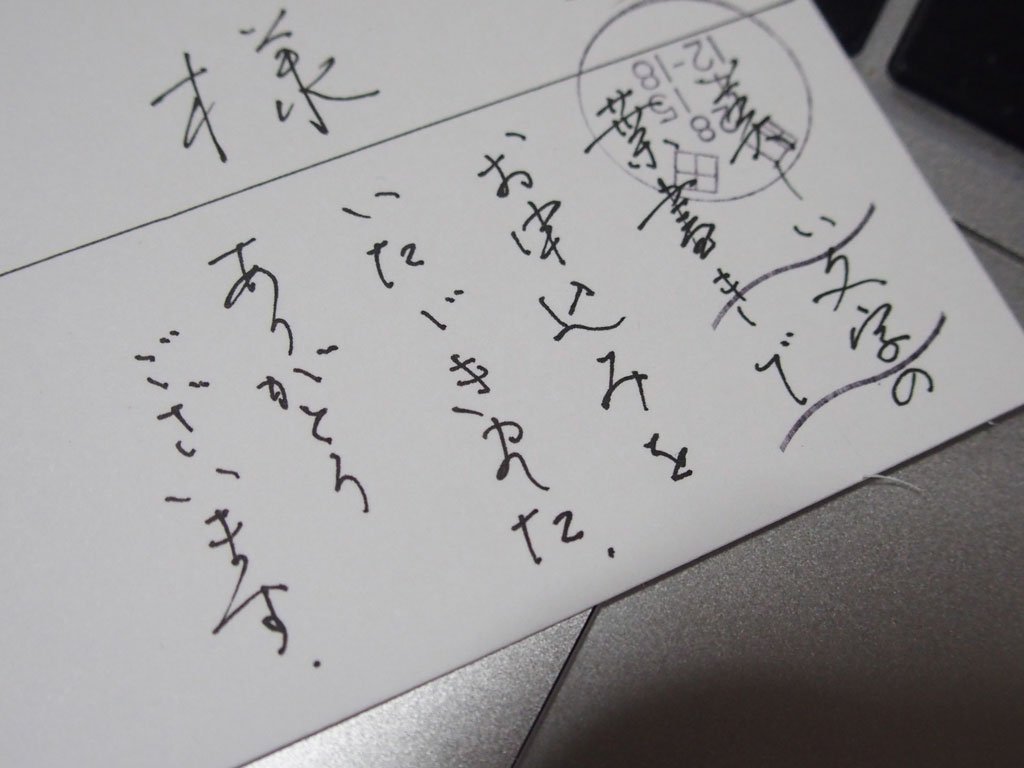 様
美しい文字の
葉書きで
お申込みを
いただきました.
ありがとう
ございます.
12-18